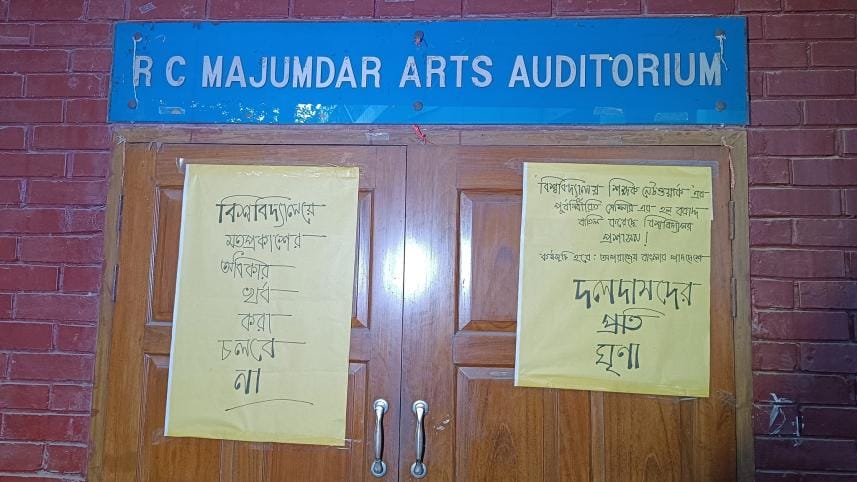 R C MAJUMDAR ARTS AUDITORIUM
বিশ্ববিদ্যালয়ে
মতপ্রকাশের
অধিকার
খর্ব
করা
চলবে
না
বিশ্ববিদ্যালয় শিক্ষক নেটওয়ার্ক এর
পূর্বনির্ধারিত সেমিনার এর হল বরাদ্দ
বাতিল করেছে বিশ্ববিদ্যালয়
প্রশাসন!
কর্মসূচি হবে: অপরাজেয় বাংলার পাদদেশে
দলদাসদের
প্রতি
ঘৃণা